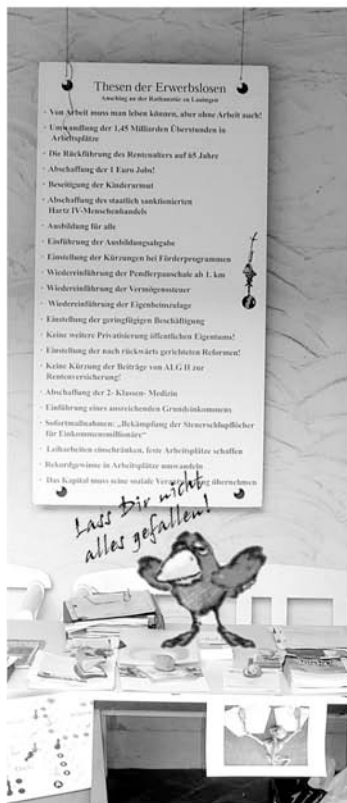 Thesen der Erwerbslosen
Anschlag an der Rathaustür zu Lauingen
· Von Arbeit muss man leben können, aber ohne Arbeit auch!
· Umwandlung der 1,45 Milliarden Überstunden in
Arbeitsplätze
· Die Rückführung des Rentenalters auf 65 Jahre
· Abschaffung der 1 Euro Jobs!
· Beseitigung der Kinderarmut
· Abschaffung des staatlich sanktionierten
Hartz IV-Menschenhandels
· Ausbildung für alle
· Einführung der Ausbildungsabgabe
· Einstellung der Kürzungen bei Förderprogrammen
· Wiedereinführung der Pendlerpauschale ab 1. km
· Wiedereinführung der Vermögenssteuer
· Wiedereinführung der Eigenheimzulage
· Einstellung der geringfügigen Beschäftigung
· Keine weitere Privatisierung öffentlichen Eigentums!
· Einstellung der nach rückwärts gerichteten Reformen!
· Keine Kürzung der Beiträge von ALG II zur
Rentenversicherung!
· Abschaffung der 2- Klassen- Medizin
· Einführung eines ausreichenden Grundeinkommens
· Sofortmaßnahmen: „Bekämpfung der Steuerschlupflöcher
für Einkommensmillionäre“
· Leiharbeiten einschränken, feste Arbeitsplätze schaffen
· Rekordgewinne in Arbeitsplätze umwandeln
· Das Kapital muss seine soziale Verantwortung übernehmen
Lass Dir nicht
alles gefallen!